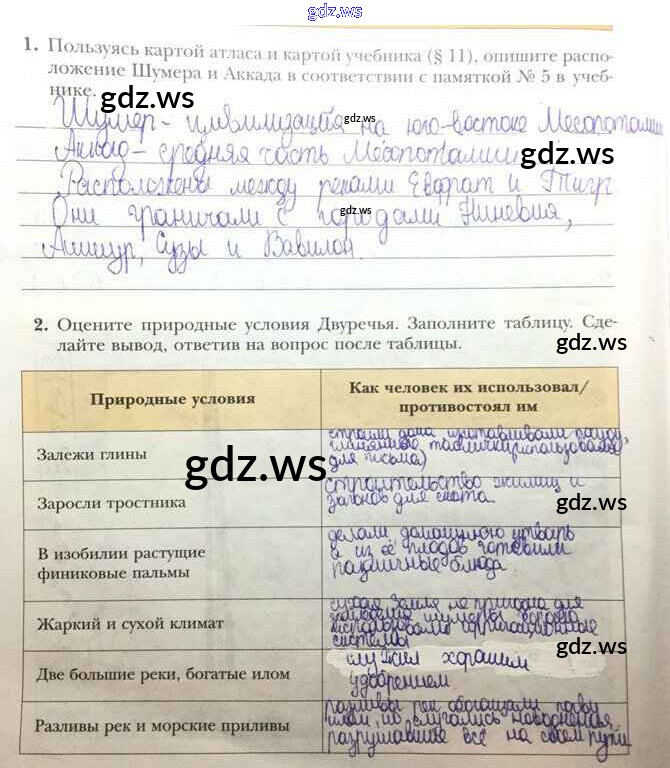 gdz.ws
1. Пользуясь картой атласа и картой учебника (§ 11), опишите распо-
ложение Шумера и Аккада в соответствии с памяткой № 5 в учеб-
нике.
gdz.ws
gdz.ws
Шумер - цивилизация на юго-востоке Месопотамии
gdz.ws
Аккад - средняя часть Месопотамии
gdz.ws
Расположены между реками Евфрат и Тигр.
Они граничали с городами Ниневия,
gdz.ws
Ашшур, Сузы и Вавилон.
2. Оцените природные условия Двуречья. Заполните таблицу. Сде-
лайте вывод, ответив на вопрос после таблицы.
gdz.ws
Природные условия
Как человек их использовал/
противостоял им
Залежи глины
строили дома изготавливали посуду,
глиняные таблички (использовали
для письма)
gdz.ws
gdz.ws
Заросли тростника
строительство жилищ и
загонов для скота
gdz.ws
В изобилии растущие
финиковые пальмы
делали домашнюю утварь
а из её плодов готовили
различные блюда
Жаркий и сухой климат
сухая земля не пригодна для
шумеры
использовали ирригационные
системы
gdz.ws
Две большие реки, богатые илом
служил хорошим
удобрением
Разливы рек и морские приливы
разливы рек обогащали почву
илом, но случались наводнения
разрушавшие всё на своём пути
gdz.ws